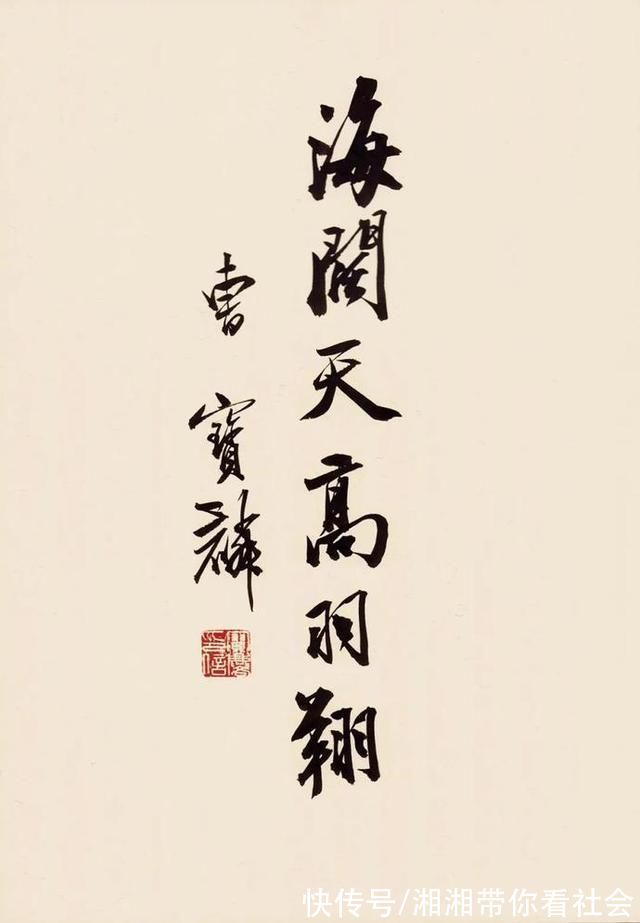 海闊天高羽翔
曹寶麟
快传号/湘湘带你看社会